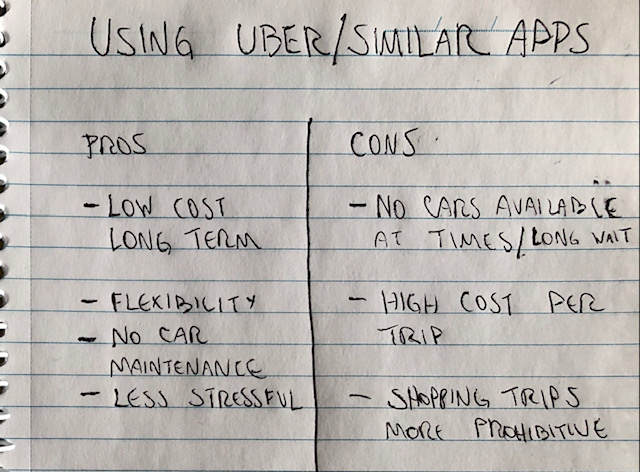 USING UBER/SIMILAR APPS
PROS
- LOW COST
LONG TERM
- FLEXIBILITY
- NO CAR
MAINTENANCE
- LESS STRESSFUL
CONS
- NO CARS AVAILABLE
AT TIMES/LONG WAIT
- HIGH COST PER
TRIP
- SHOPPING TRIPS
MORE PROHIBITIVE